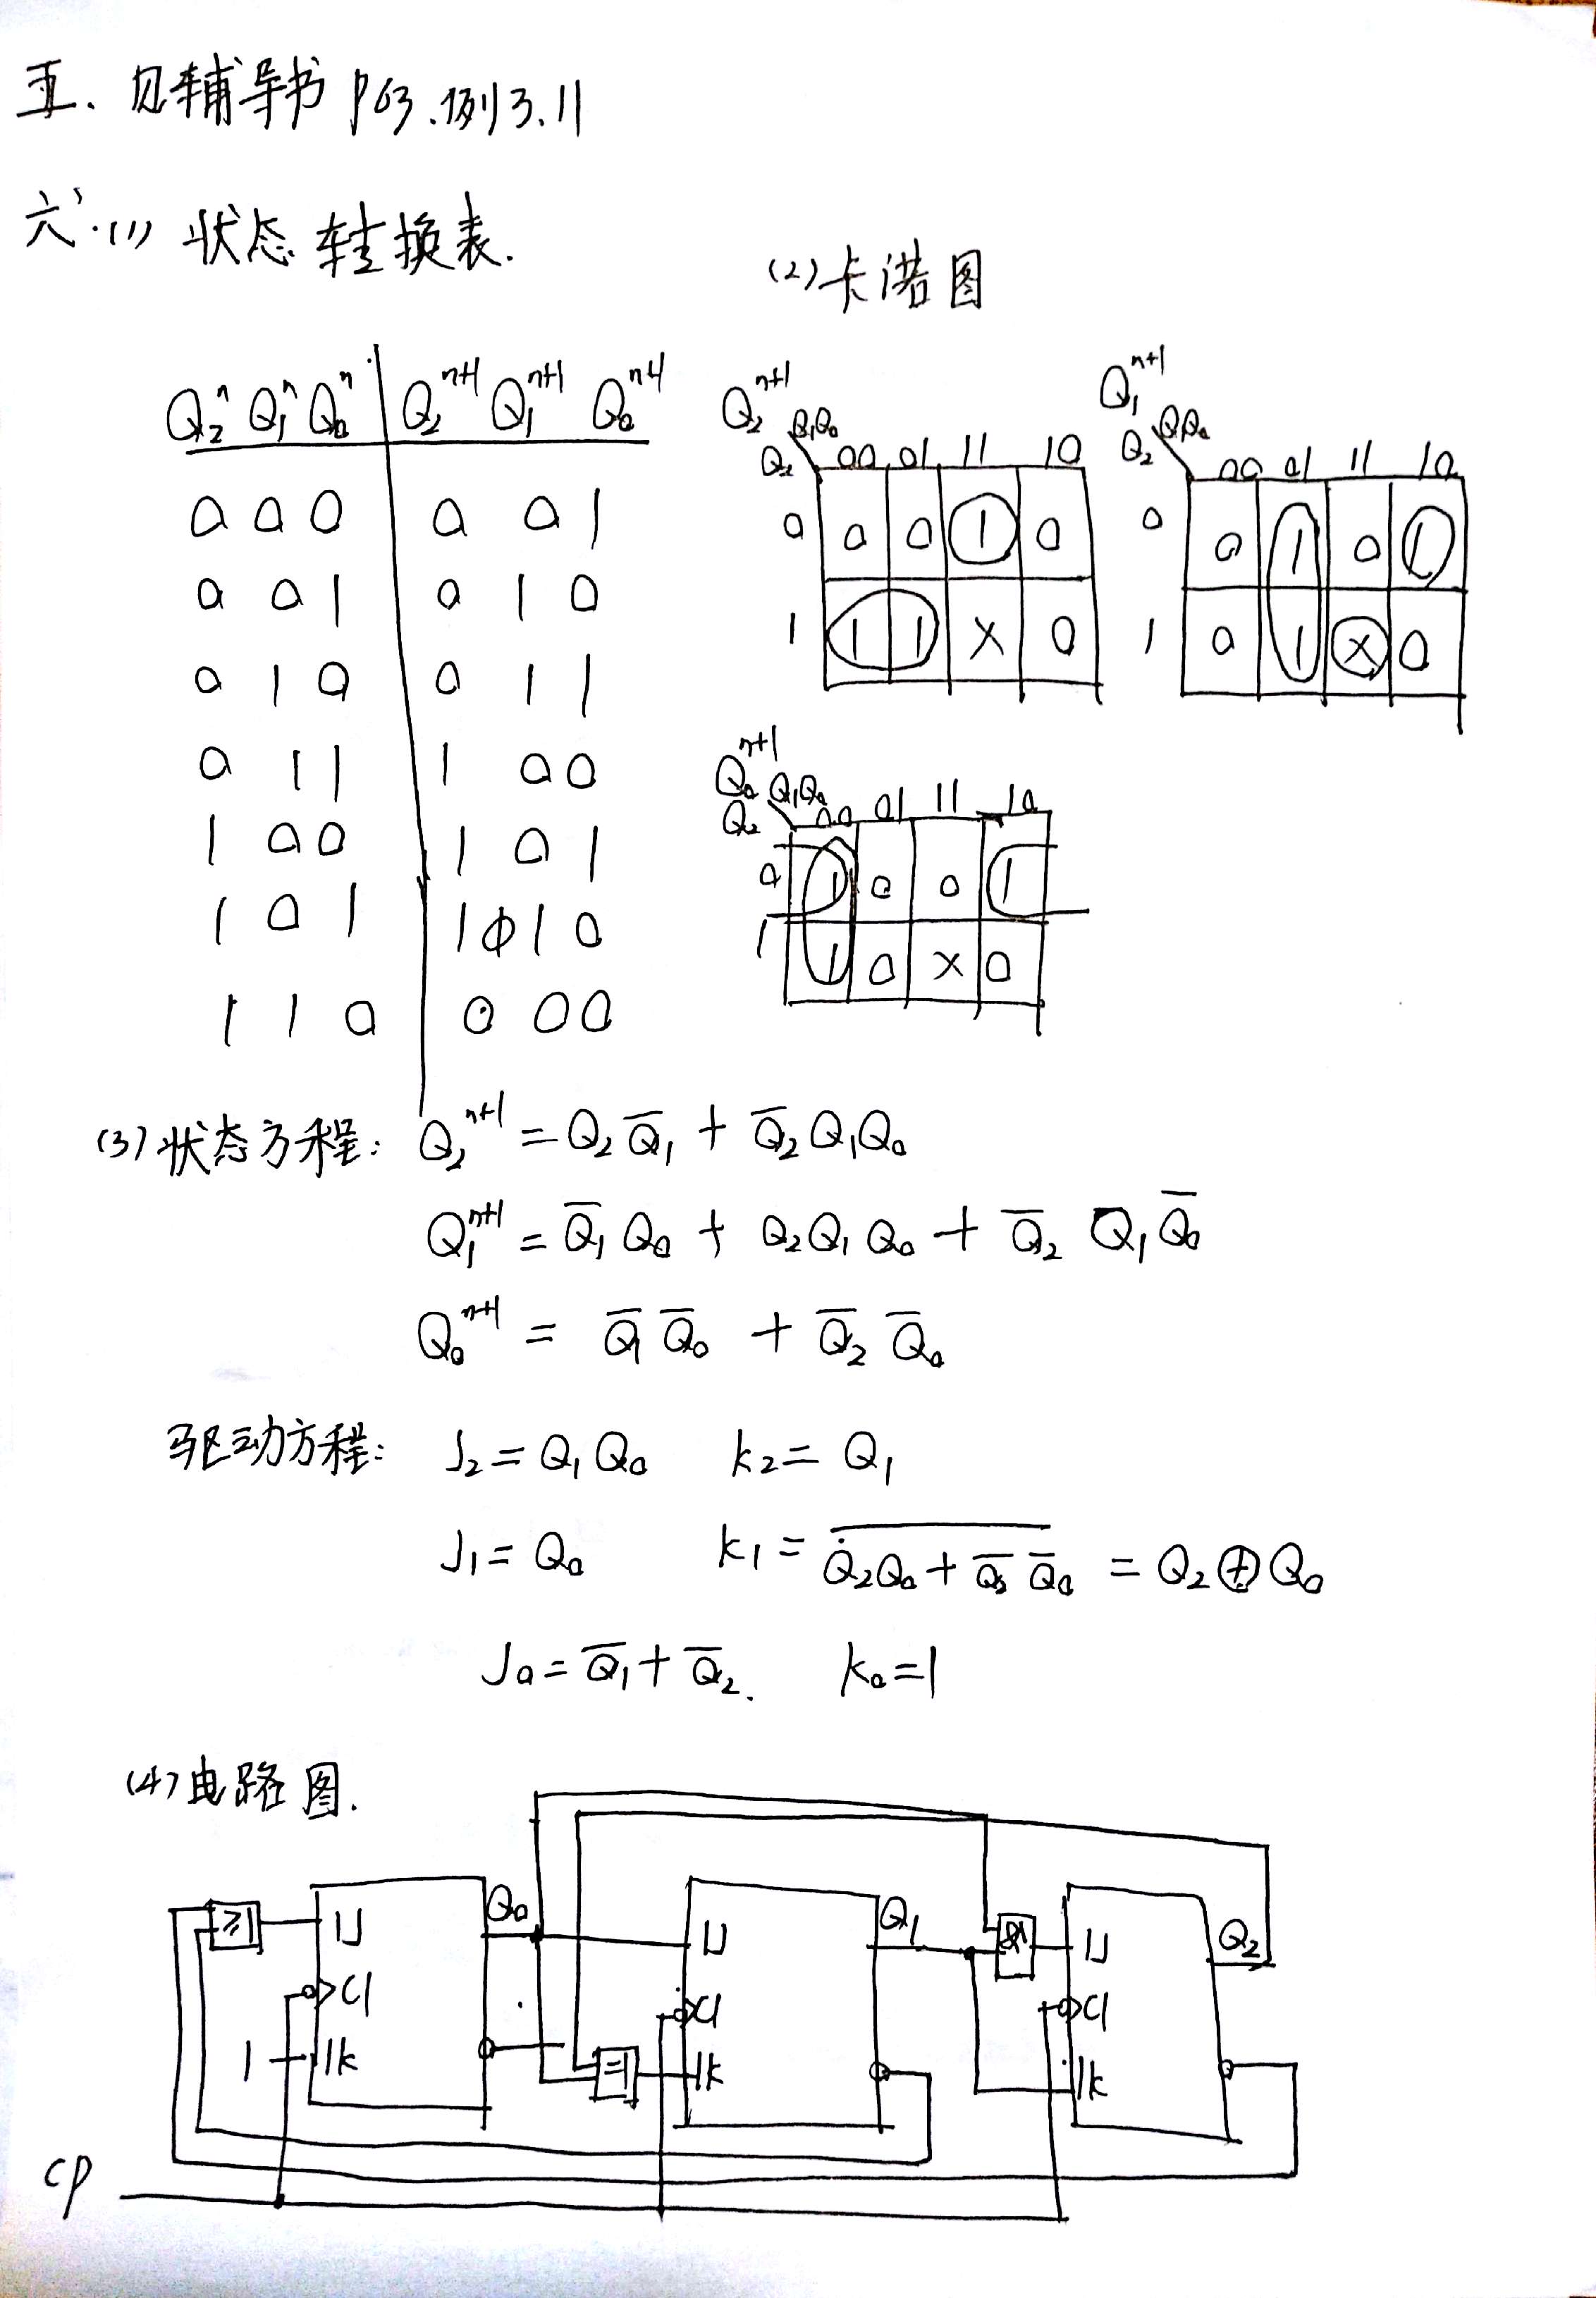 五、见辅导书 P63.例3.11
六、(1) 状态转换表.
Q₂ⁿ Q₁ⁿ Q₀ⁿ | Q₂ⁿ⁺¹ Q₁ⁿ⁺¹ Q₀ⁿ⁺¹
0 0 0 | 0 0 1
0 0 1 | 0 1 0
0 1 0 | 0 1 1
0 1 1 | 1 0 0
1 0 0 | 1 0 1
1 0 1 | 1 1 0
1 1 0 | 0 0 0
(2) 卡诺图
Q₂ⁿ⁺¹
Q₂ \ Q₁Q₀ 00 01 11 10
0 0 0 1 0
1 1 1 × 0
Q₁ⁿ⁺¹
Q₂ \ Q₁Q₀ 00 01 11 10
0 0 1 0 1
1 0 1 × 0
Q₀ⁿ⁺¹
Q₂ \ Q₁Q₀ 00 01 11 10
0 1 0 0 1
1 1 0 × 0
(3) 状态方程: Q₂ⁿ⁺¹ = Q₂Q̅₁ + Q̅₂Q₁Q₀
Q₁ⁿ⁺¹ = Q̅₁Q₀ + Q₂Q₁Q₀ + Q̅₂ Q₁Q̅₀
Q₀ⁿ⁺¹ = Q̅₁Q̅₀ + Q̅₂Q̅₀
驱动方程: J₂ = Q₁Q₀ k₂ = Q₁
J₁ = Q₀ k₁ = \overline{Q₂Q₀ + Q̅₂Q̅₀} = Q₂⊕Q₀
J₀ = Q̅₁ + Q̅₂. k₀ = 1
(4) 电路图.
≥1 1J Q₀ 1J Q₁ & 1J Q₂
C1 C1 C1
1 1k =1 1k 1k
CP